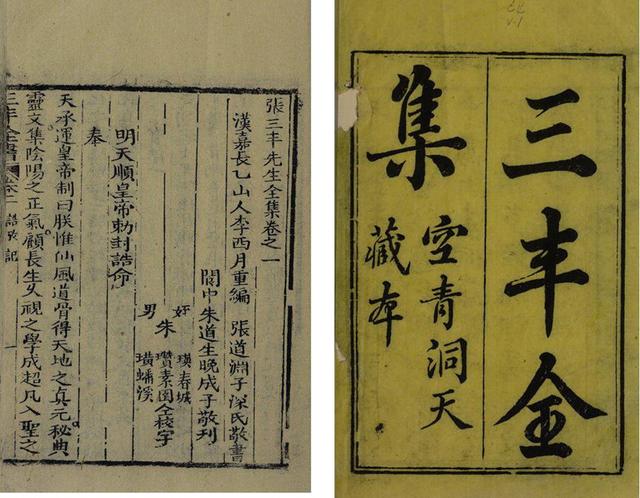 三丰全
集
空青洞天
藏本
張三丰先生全集卷之一
漢嘉長乙山人李西月重編 張道淵子深氏敬書
閬中朱道生晚成子敬刊
姪 瑛春城
朱 瓚素園仝校字
男 璜蟠溪
明天順皇帝勅封誥命
奉
天承運皇帝制曰朕惟仙風道骨得天地之真元秘典
靈文集陰陽之正氣顧長生久視之學成超凡入聖之
三丰全書 卷一 一